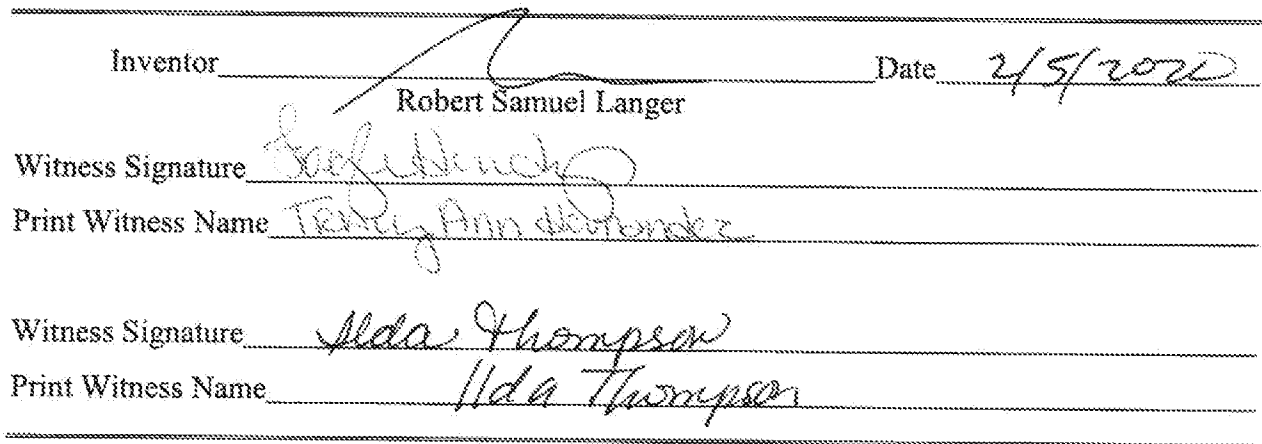 Inventor Date 2/5/2020
Robert Samuel Langer
Witness Signature
Print Witness Name Ann Hernandez
Witness Signature Ilda Thompson
Print Witness Name Ilda Thompson